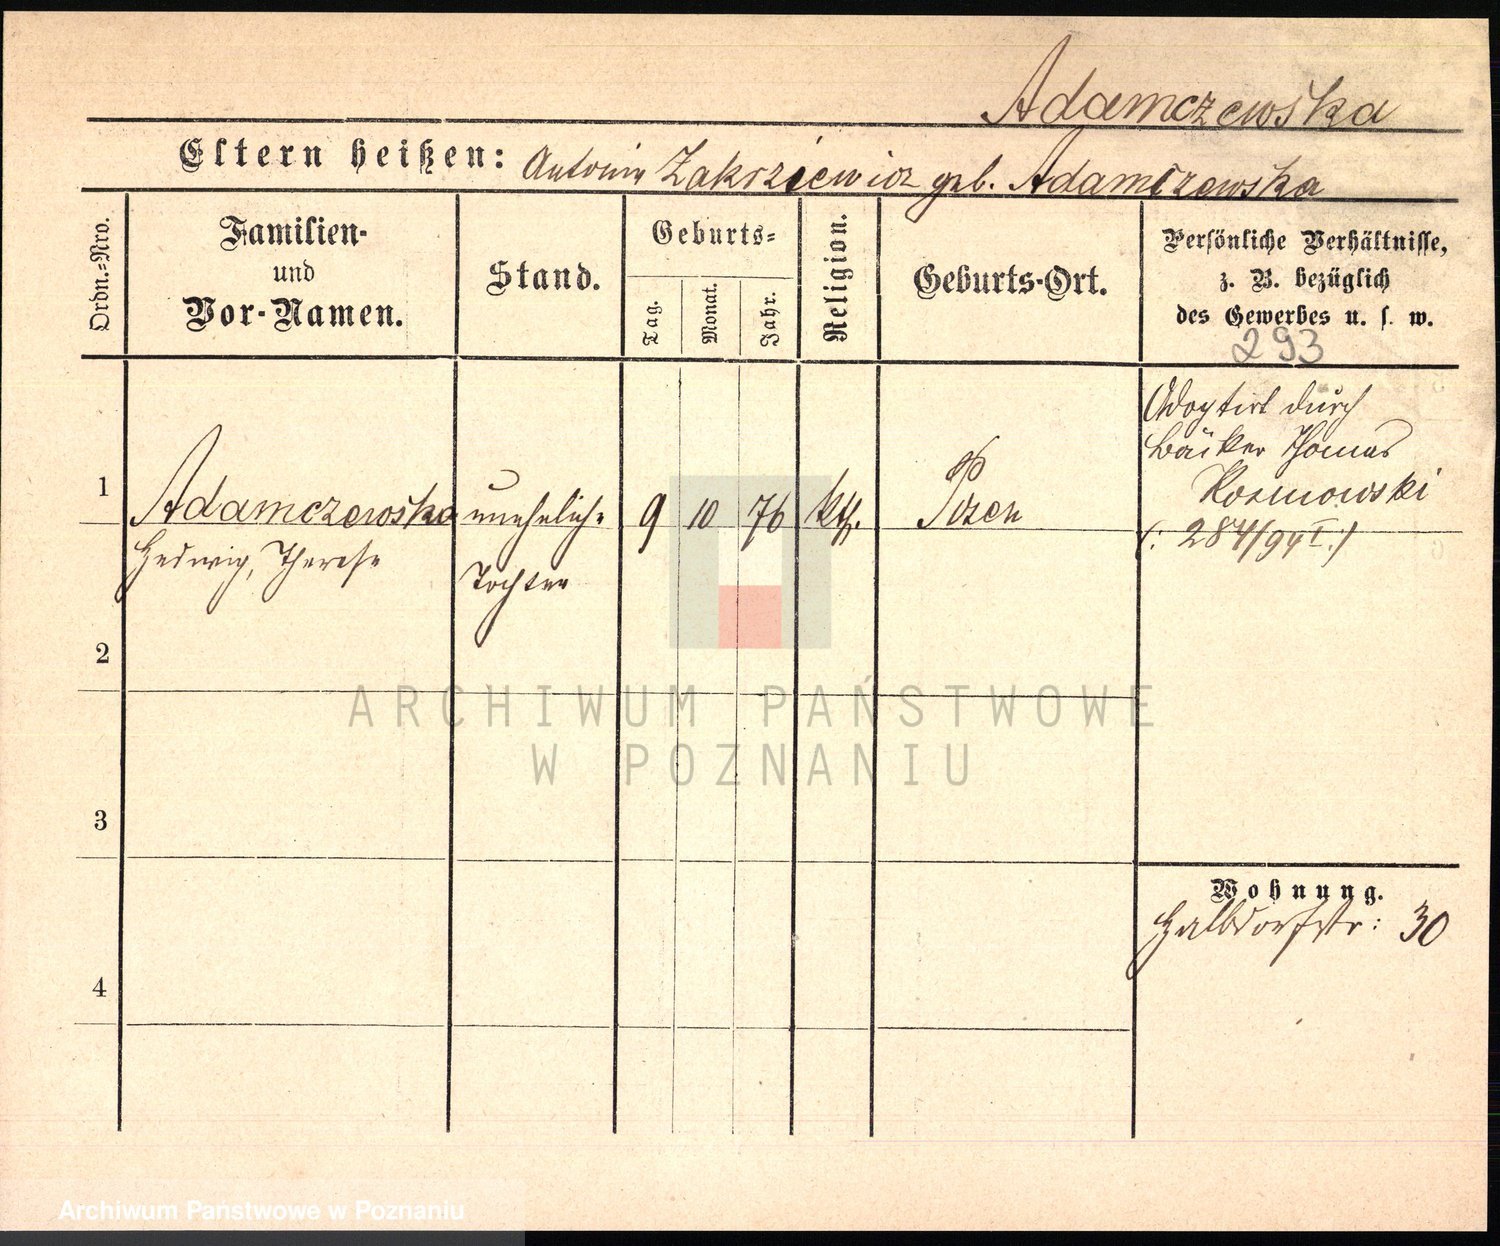 Adamczewska
Eltern heißen: Antonie Zakrziewicz geb. Adamczewska
Ordn.-Nro.
Familien-
und
Vor-Namen.
Stand.
Geburts-
Tag.
Monat.
Jahr.
Religion.
Geburts-Ort.
Persönliche Verhältnisse,
z. B. bezüglich
des Gewerbes u. s. w.
293
1
Adamczewska
Hedwig, Therese
uneheliche
Tochter
9
10
76
kth.
Posen
Adoptirt durch
Bäcker Thomas
Rosmowski
(: 284/94 I :)
2
3
4
Wohnung.
Halbdorfstr: 30
ARCHIWUM PAŃSTWOWE
W POZNANIU
Archiwum Państwowe w Poznaniu